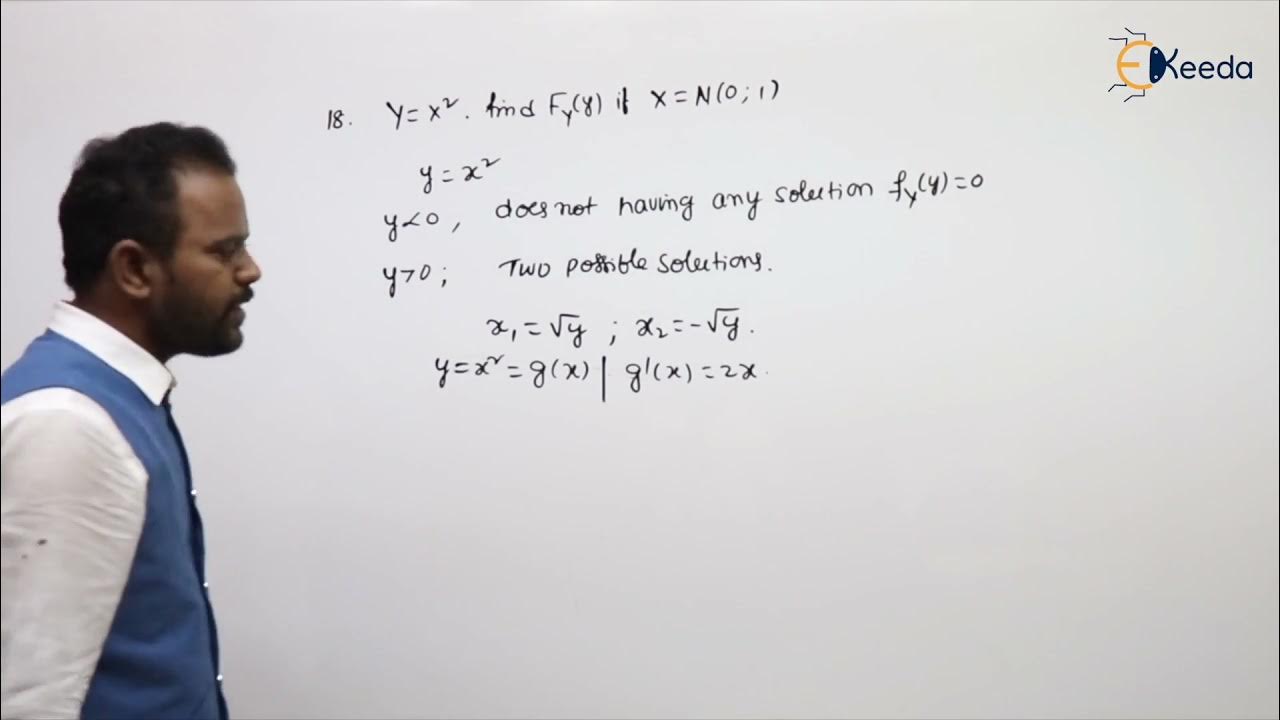 EKeeda
18. Y = x². find Fy(y) if X = N(0; 1)
y = x²
y < 0, does not having any solution fy(y) = 0
y > 0; Two possible solutions.
x₁ = √y ; x₂ = -√y.
y = x² = g(x) | g'(x) = 2x.